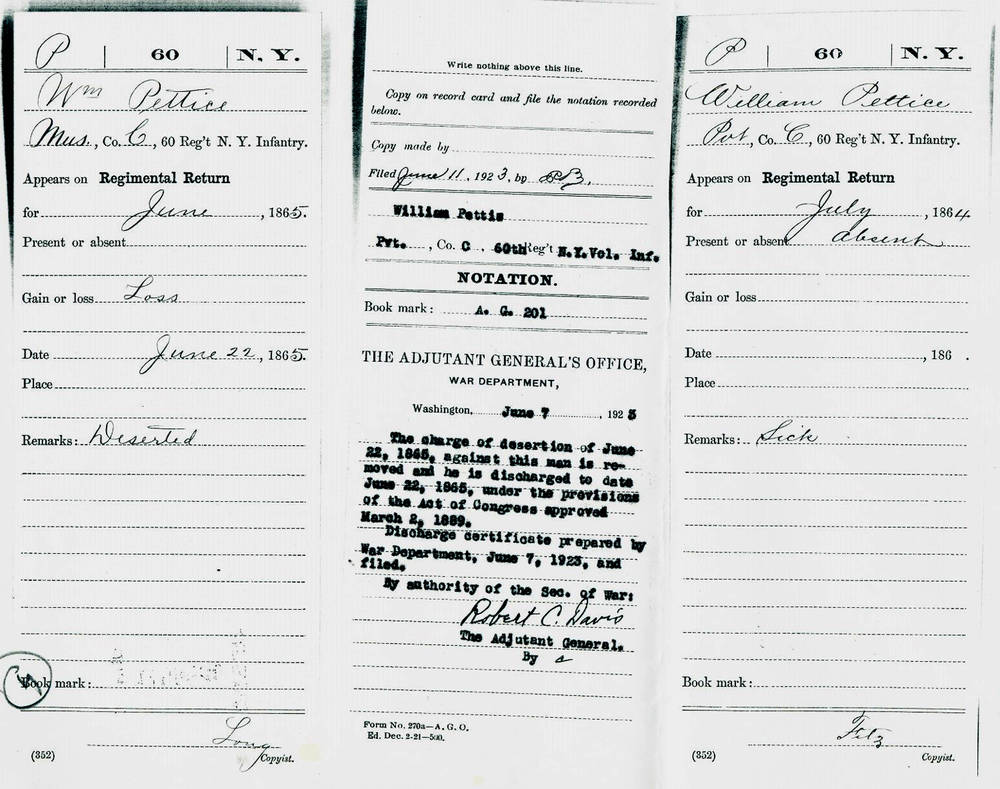 P | 60 | N. Y.
Wm Pettice
Mus., Co. C, 60 Reg't N. Y. Infantry.
Appears on Regimental Return
for June, 1865.
Present or absent
Gain or loss Loss
Date June 22, 1865.
Place
Remarks: Deserted
Book mark:
Long
(352) Copyist.
Write nothing above this line.
Copy on record card and file the notation recorded
below.
Copy made by
Filed June 11, 1923, by
William Pettis
Pvt., Co. C. 60th Reg't N.Y.Vol. Inf.
NOTATION.
Book mark: A. G. 201
THE ADJUTANT GENERAL'S OFFICE,
WAR DEPARTMENT,
Washington, June 7, 1923
The charge of desertion of June
22, 1865, against this man is re-
moved and he is discharged to date
June 22, 1865, under the provisions
of the Act of Congress approved
March 2, 1889.
Discharge certificate prepared by
War Department, June 7, 1923, and
filed.
By authority of the Sec. of War:
Robert C. Davis
The Adjutant General.
By
Form No. 270a—A. G. O.
Ed. Dec. 2-21—500.
P | 60 | N. Y.
William Pettice
Pvt, Co. C, 60 Reg't N. Y. Infantry.
Appears on Regimental Return
for July, 1864
Present or absent absent
Gain or loss
Date , 186 .
Place
Remarks: Sick
Book mark:
Fitz
(352) Copyist.